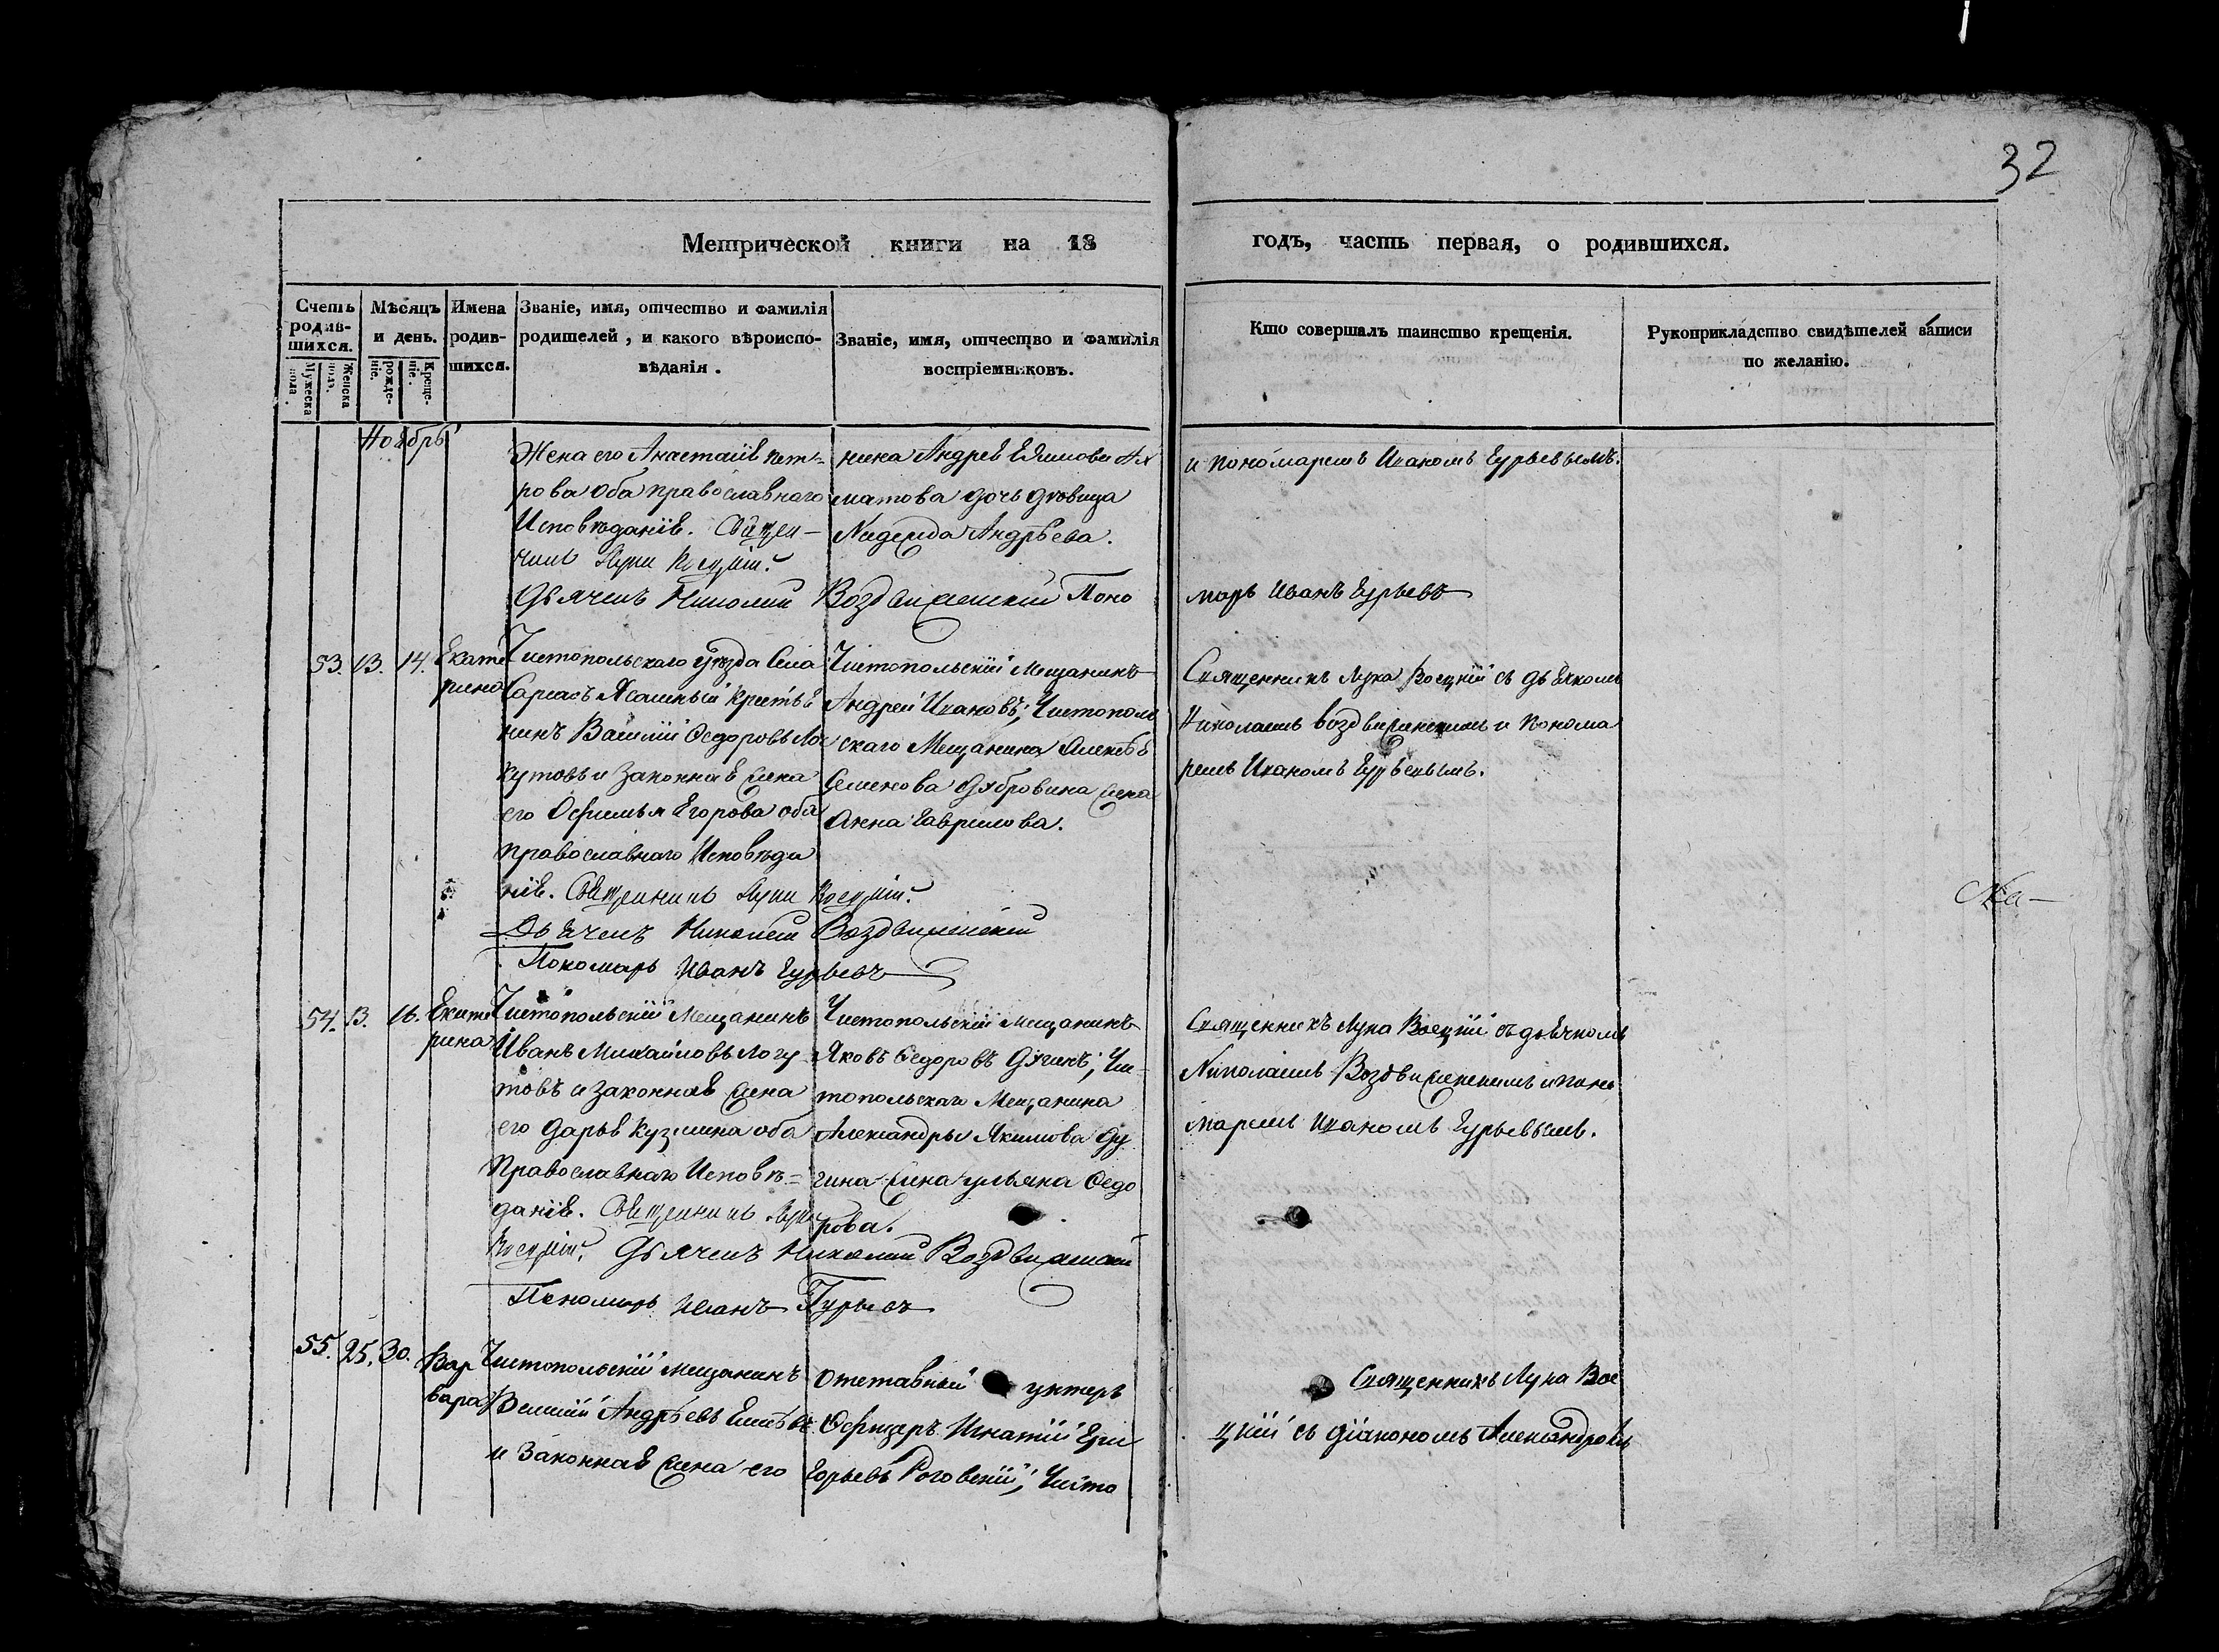 32
Метрической книги на 18 годъ, часть первая, о родившихся.
Счетъ родив-шихся.
Мужеска пола.
Женска пола.
Мѣсяцъ и день.
рожде-нiе.
Креще-нiе.
Имена родив-шихся.
Званіе, имя, отчество и фамилія родителей, и какого вѣроиспо-вѣданія.
Званіе, имя, отчество и фамилія воспріемниковъ.
Кто совершалъ таинство крещенія.
Рукоприкладство свидѣтелей записи по желанію.
Ноябрь
Жена его Анастасія Пет=
рова оба православнаго
Исповѣданія. Священ-
никъ Лука
Дьячекъ Николай Воздвиженский Поно
нина Андрея Екимова
матова дочь дѣвица
Надежда Андрѣева.
и пономаремъ Иваномъ Гурьевымъ.
марь Иванъ Гурьевъ
53. 13. 14.
Екате
рина
Чистопольскаго уѣзда Села
Сарсасъ Ясашный крестья
нинъ Василій Ѳедоровъ
и законная жена
его Ѳефимья Егорова оба
православнаго Исповѣда
нія. Священникъ Лука
Дьячекъ Николай Воздвиженский
Пономарь Иванъ Гурьевъ
Чистопольскій Мещанинъ
Андрей Ивановъ; Чистополь
скаго Мещанина Алексѣя
Семенова жена
Анна Гаврилова.
Священникъ Лука съ дьячкомъ
Николаемъ Воздвиженскимъ и понома
ремъ Иваномъ Гурьевымъ.
Ма-
54. 13. 16.
Екате
рина
Чистопольскій Мещанинъ
Иванъ Михайловъ Логу
товъ и законная жена
его Дарья Кузмина оба
Православнаго Исповѣ=
данія. Священникъ Лука
Дьячекъ Николай Воздвиженский
Пономарь Иванъ Гурьевъ
Чистопольскій Мещанинъ
Яковъ Ѳедоровъ; Чи-
стопольскаго Мещанина
Александры Якимова Ду
гина жена Ульяна Ѳедо
рова.
Священникъ Лука съ дьячкомъ
Николаемъ Воздвиженскимъ и поно
маремъ Иваномъ Гурьевымъ.
55. 25. 30.
Вар
вара
Чистопольскій мещанинъ
Василій Андрѣевъ
и законная жена его
Отставный унтеръ
Офицеръ Игнатій
Роговскій; Чисто
Священникъ Лука
цкій съ діакономъ Александромъ